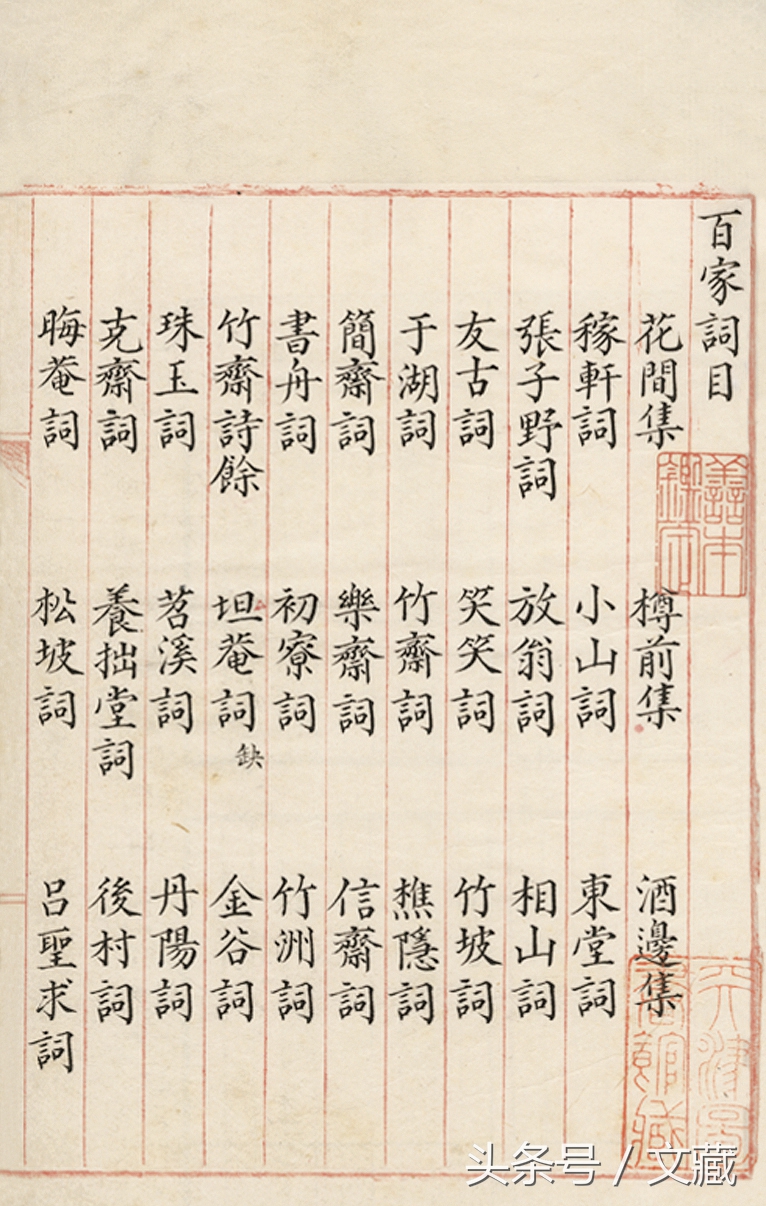 百家詞目
花間集 樽前集 酒邊集
稼軒詞 小山詞 東堂詞
張子野詞 放翁詞 相山詞
友古詞 笑笑詞 竹坡詞
于湖詞 竹齋詞 樵隱詞
簡齋詞 樂齋詞 信齋詞
書舟詞 初寮詞 竹洲詞
竹齋詩餘 坦菴詞 缺 金谷詞
珠玉詞 苕溪詞 丹陽詞
克齋詞 養拙堂詞 後村詞
晦菴詞 松坡詞 呂聖求詞
善本
头条号 / 文藏